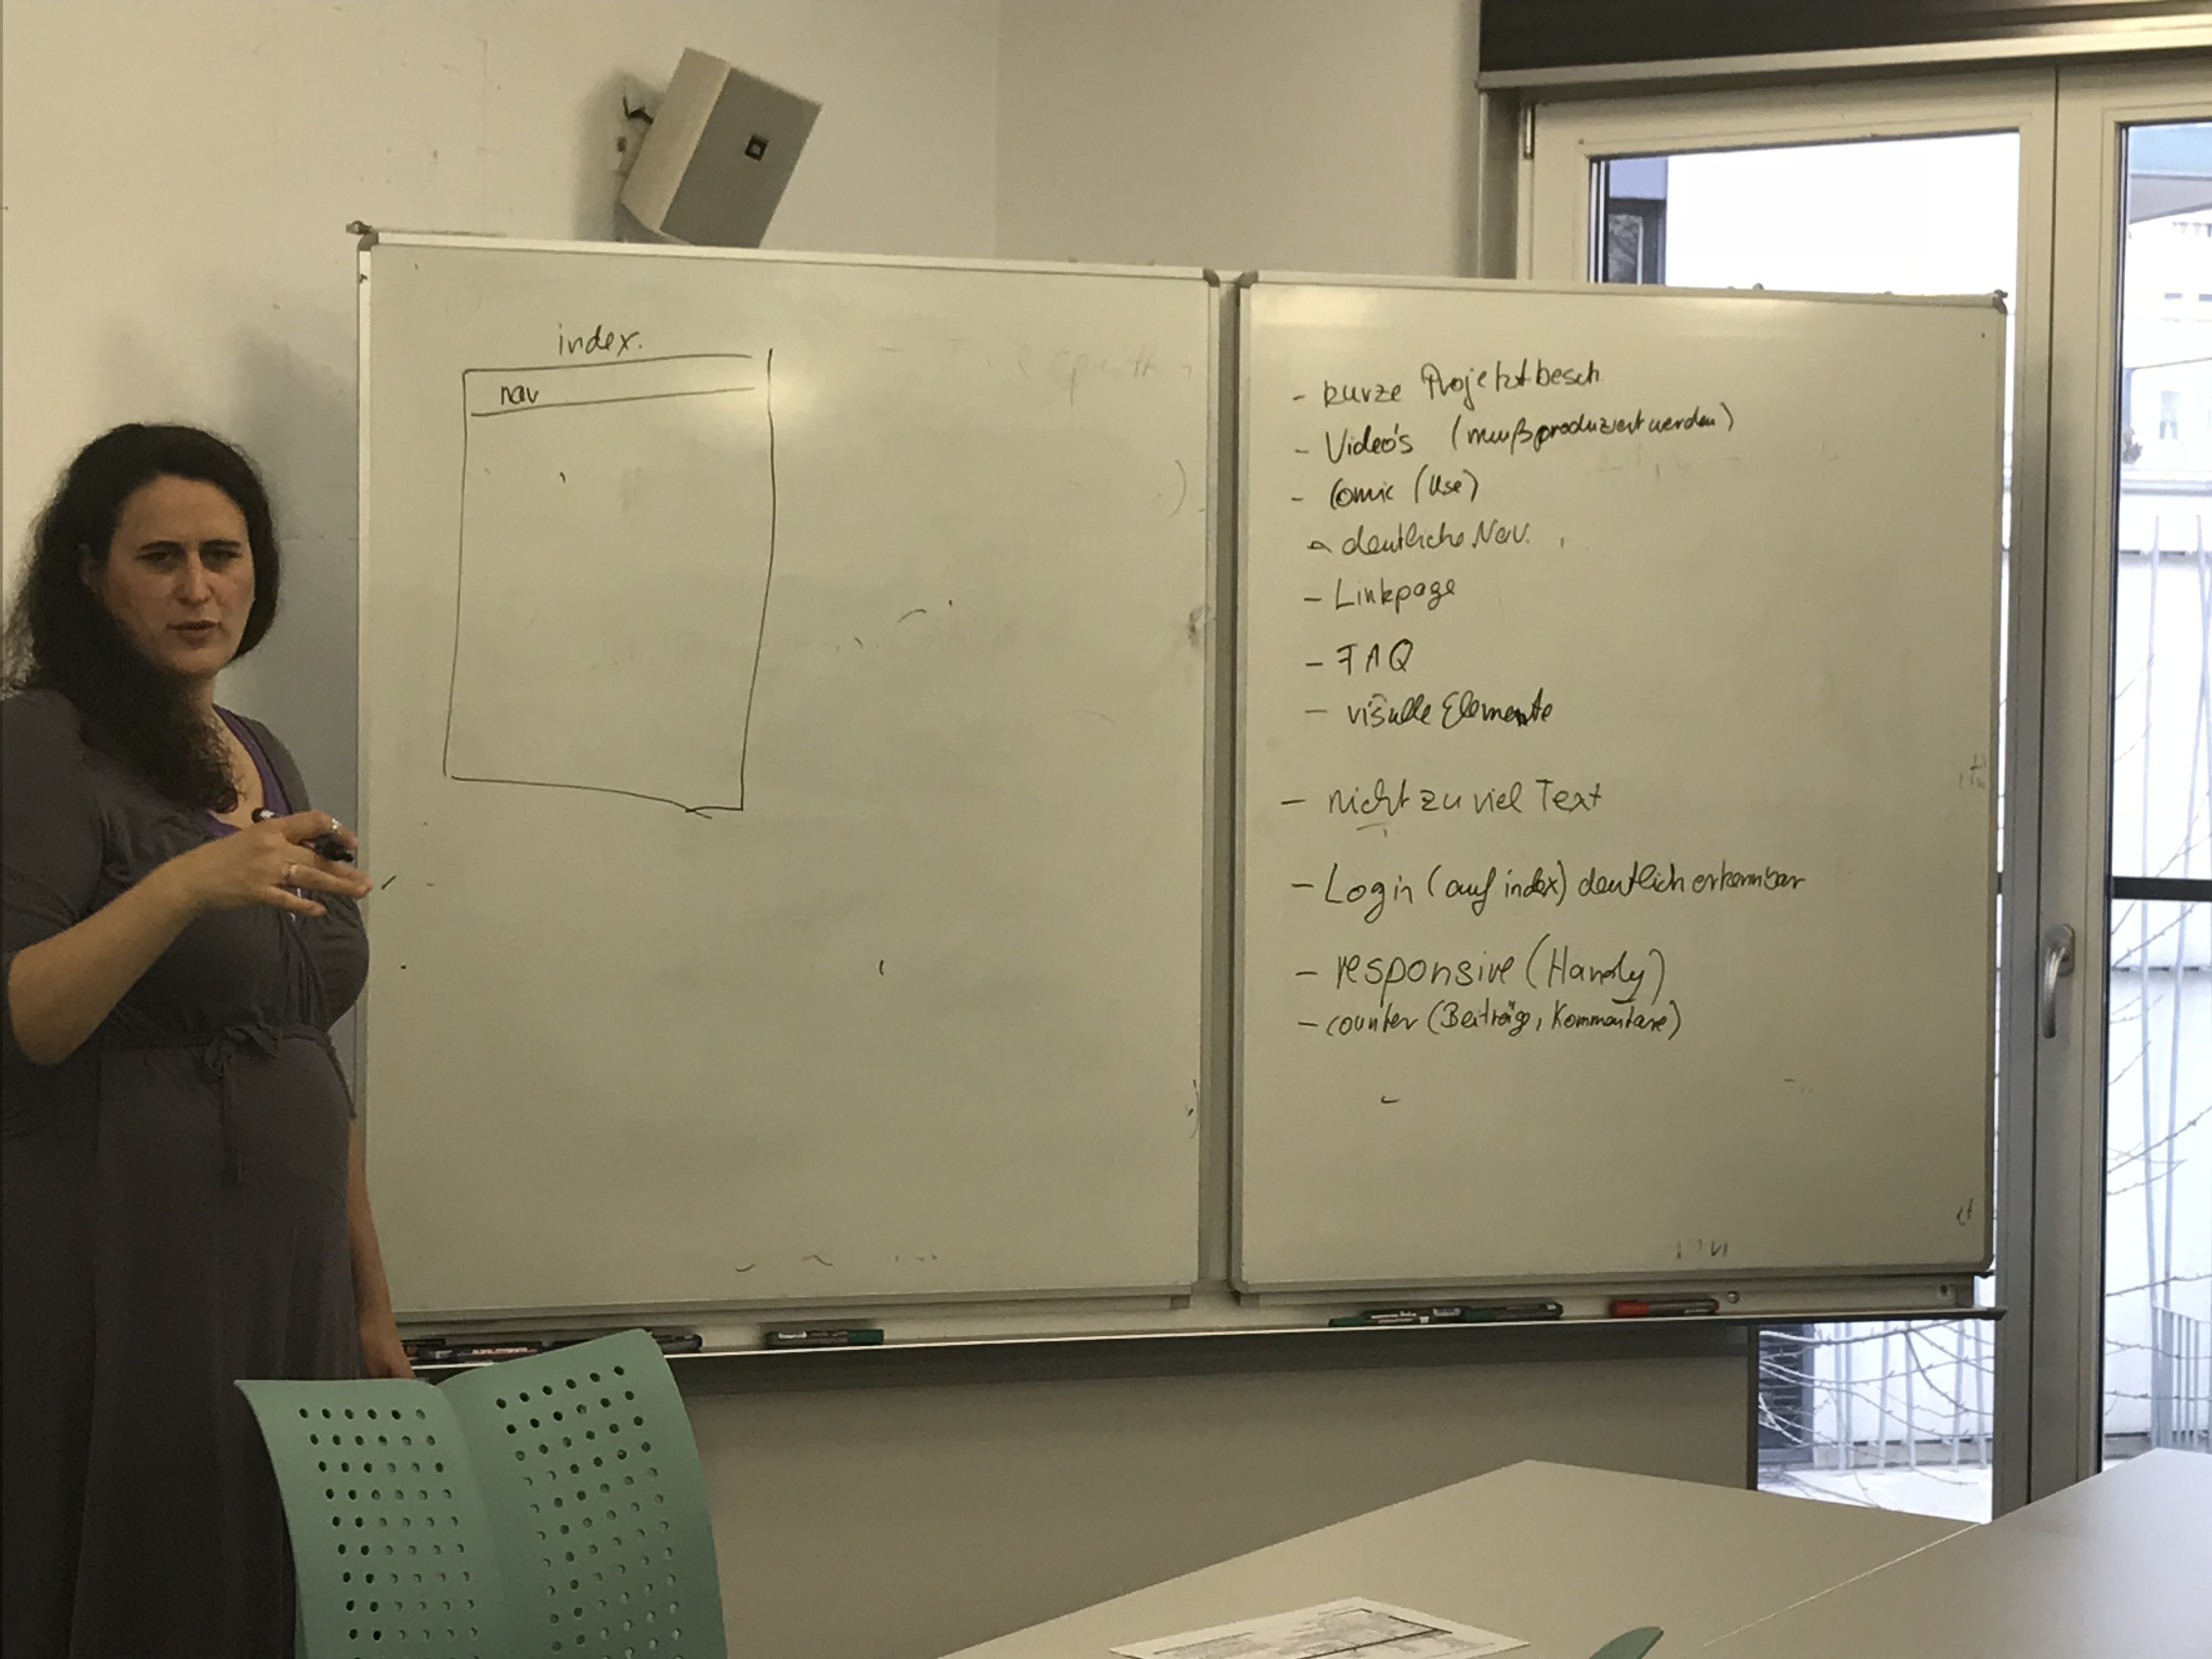 index.
nav
- kurze Projektbesch.
- Video's (muß produziert werden)
- Comic (Use)
- deutliche Nav.
- Linkpage
- FAQ
- visulle Elemente
- nicht zu viel Text
- Login (auf index) deutlich erkennbar
- responsive (Handy)
- counter (Beiträge, Kommentare)